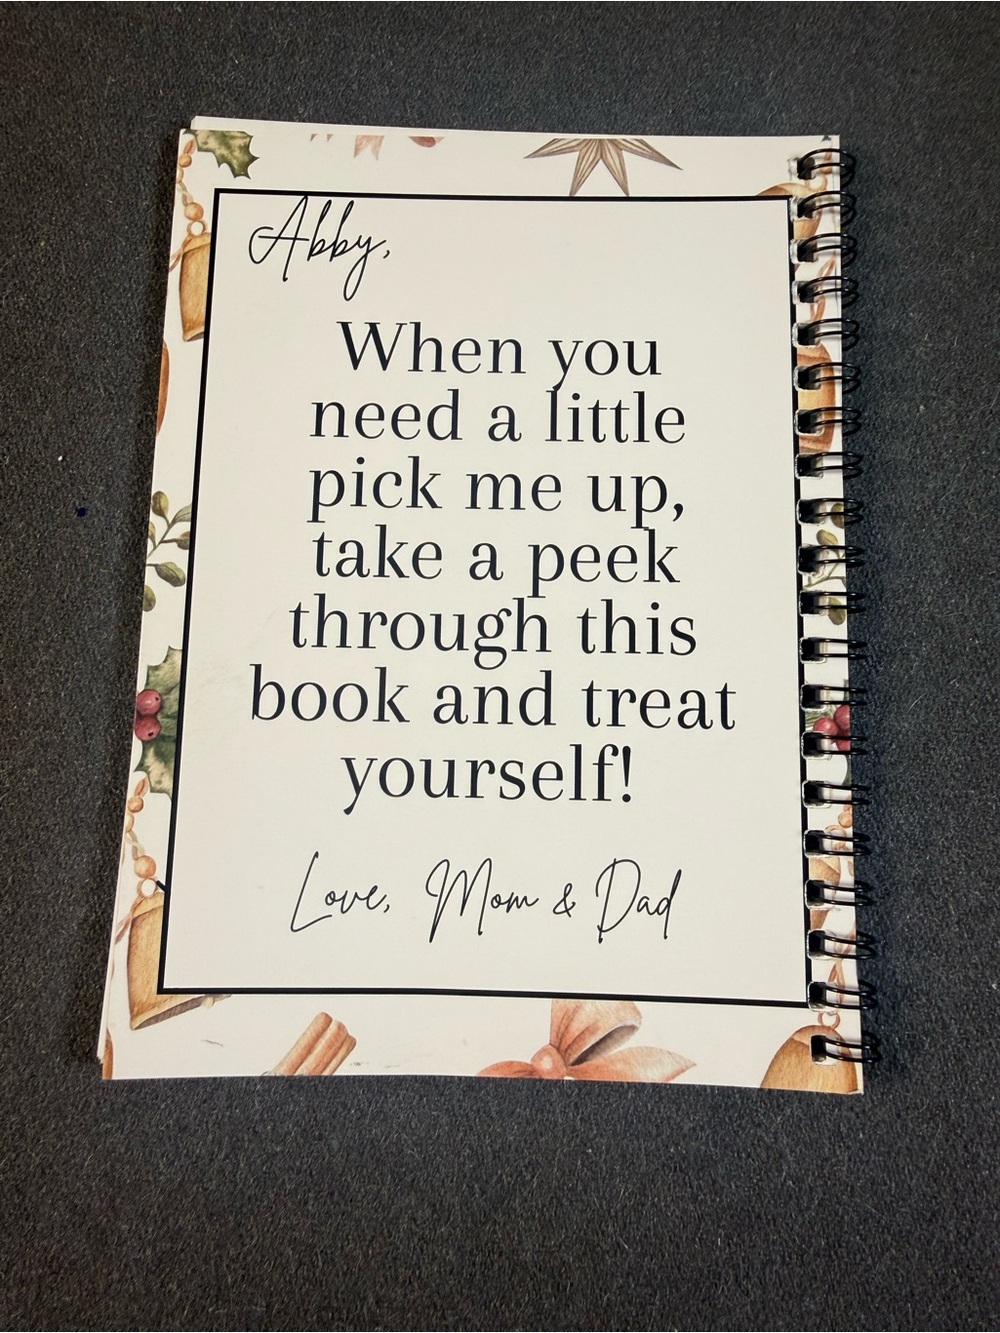 Abby,
When you
need a little
pick me up,
take a peek
through this
book and treat
yourself!
Love, Mom & Dad